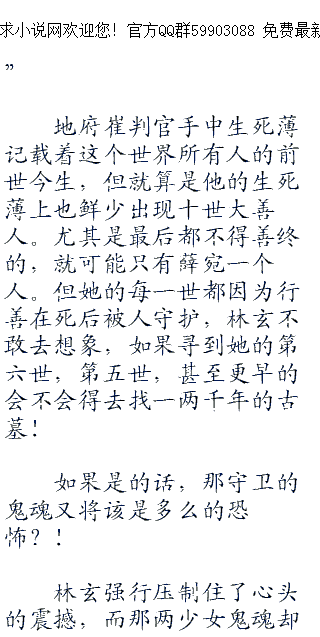 求小说网欢迎您！官方QQ群59903088 免费最新
”
地府崔判官手中生死薄
记载着这个世界所有人的前
世今生，但就算是他的生死
薄上也鲜少出现十世大善
人。尤其是最后都不得善终
的，就可能只有薛宛一个
人。但她的每一世都因为行
善在死后被人守护，林玄不
敢去想象，如果寻到她的第
六世，第五世，甚至更早的
会不会得去找一两千年的古
墓！
如果是的话，那守卫的
鬼魂又将该是多么的恐
怖？！
林玄强行压制住了心头
的震撼，而那两少女鬼魂却